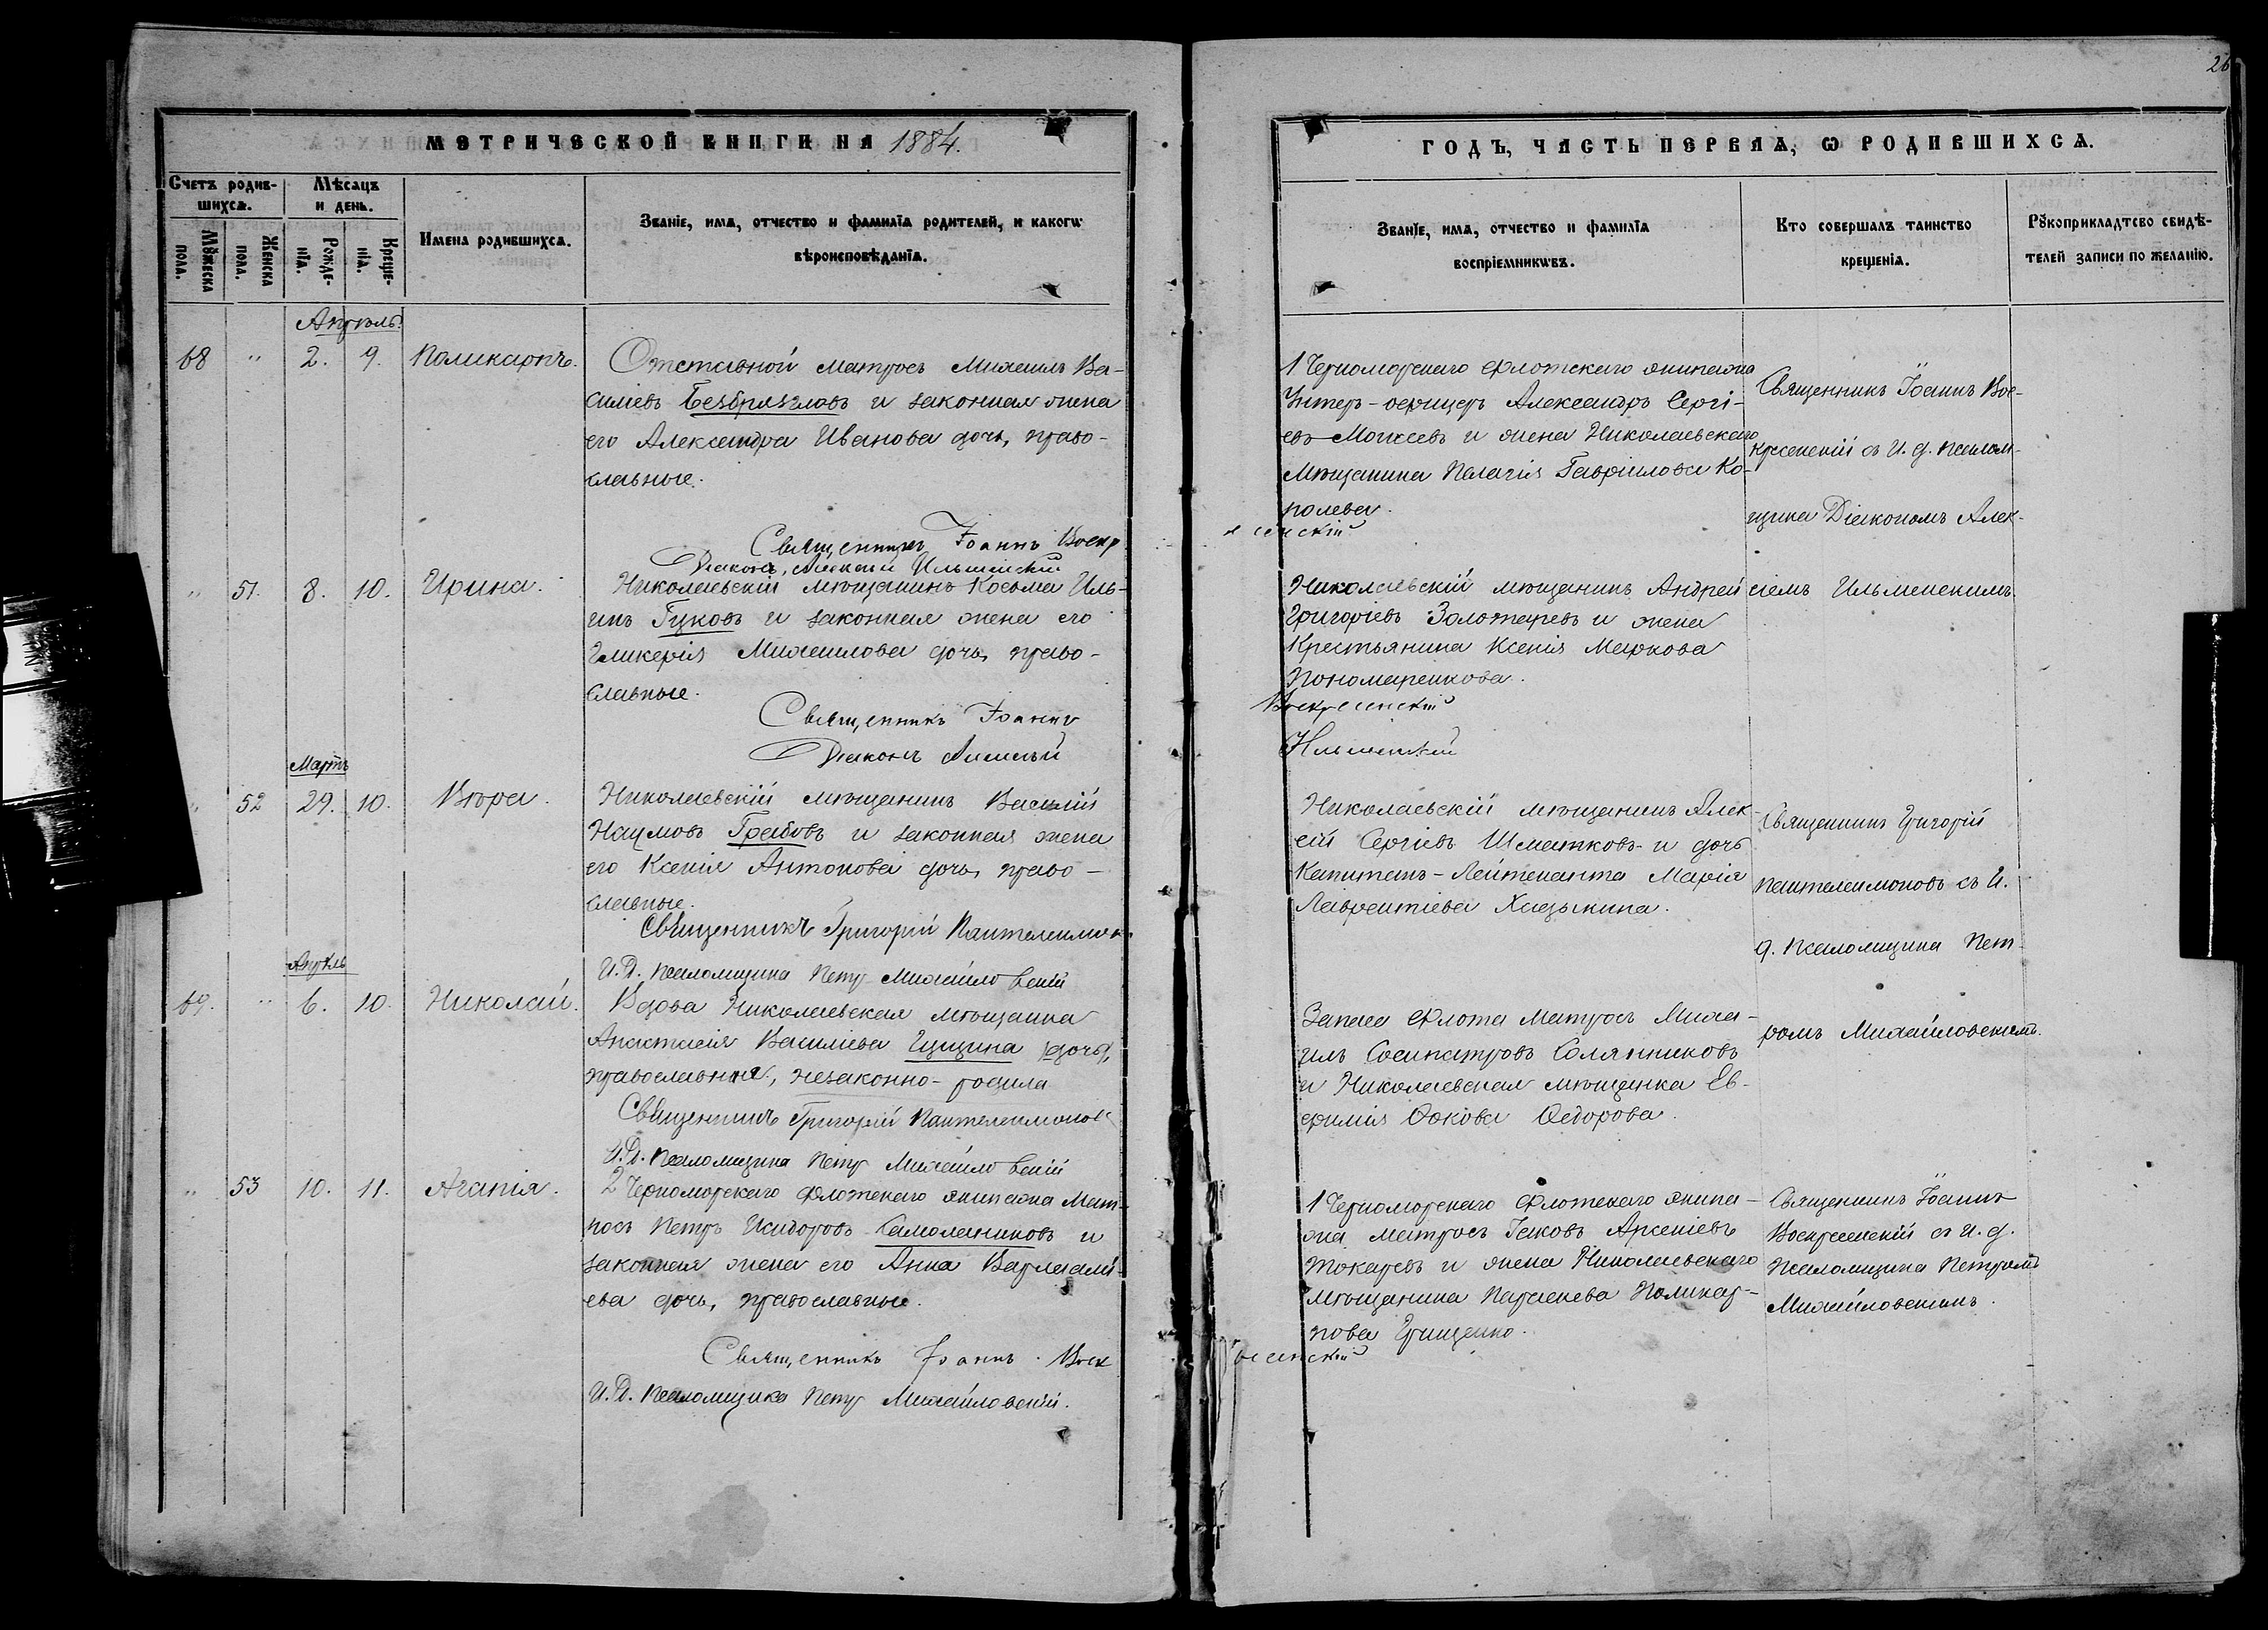 26
МЕТРИЧЕСКОЙ КНИГИ НА 1884.
ГОДЪ, ЧАСТЬ ПЕРВАѦ, Ѡ РОДИВШИХСѦ.
Счетъ родив-
шихсѧ.
Мѣсѧцъ
и день.
Мꙋжеска
пола.
Женска
пола.
Рожде-
нїѧ.
Креще-
нїѧ.
Имена родившихсѧ.
Званїе, имѧ, отчество и фамилїѧ родителей, и какогѡ
вѣроисповѣданїѧ.
Званїе, имѧ, отчество и фамилїѧ
воспрїемникѡвъ.
Кто совершалъ таинство
крещенїѧ.
Рꙋкоприкладтсво свидѣ-
телей записи по желанїю.
Апрѣль.
68 " 2. 9. Поликарпъ.
Отставной матросъ Михаилъ Ва-
сильевъ Безбрязговъ и законная жена
его Александра Иванова дочь, право-
славные.
Священникъ Іоаннъ Воскр
есенскій
Діаконъ, Алексѣй Ильменскій
1 Черноморскаго флотскаго экипажа
Унтеръ-офицеръ Александръ Сергі-
евъ Моисеевъ и жена Николаевскаго
Мѣщанина Пелагія Гавріилова Ко-
полева.
Священникъ Іоаннъ Вос-
кресенскій съ И. д. псалом-
щика Діакономъ Алек-
сіемъ Ильменскимъ.
" 51. 8. 10. Ирина.
Николаевскій мѣщанинъ Косьма Иль-
инъ Гуковъ и законная жена его
Гликерія Михаилова дочь, право-
славные.
Священникъ Іоаннъ
Воскресенскій
Діаконъ Алексѣй
Ильменскій
Николаевскій мѣщанинъ Андрей
Григоріевъ Золотаревъ и жена
Крестьянина Ксенія Маркова
Пономаренкова.
Мартъ
" 52 29. 10. Вѣра.
Николаевскій мѣщанинъ Василій
Наумовъ Грабовъ и законная жена
его Ксенія Антонова дочь, право-
славные.
Священникъ Григорій Пантелеимон
И. Д. Псаломщика Петр Михайловскій
Николаевскій мѣщанинъ Алек-
сій Сергіевъ Шматковъ и дочь
Капитанъ-Лейтенанта Марія
Лаврентіева Хадыкина.
Священникъ Григорій
Пантелеимоновъ съ И.
д. Псаломщика Пет-
ромъ Михайловскимъ.
Апрѣль
69. " 6. 10. Николай.
Вдова Николаевская мѣщанка
Анастасія Василіева Гущина (дочь),
православная, незаконно-родила
Священникъ Григорій Пантелеимонов
И. Д. Псаломщика Петр Михайловскій
Запаса флота Матросъ Миха-
илъ Сосипатровъ Солянниковъ
и Николаевская мѣщанка Ев-
фимія Ѳокова Ѳедорова.
" 53 10. 11. Агапія.
2 Черноморскаго флотскаго экипажа Мат-
росъ Петръ Исидоровъ Самоленниковъ и
законная жена его Анна Варлаамі-
ева дочь, православные.
Священникъ Іоаннъ Воск
ресенскій
И. Д. Псаломщика Петр Михайловскій.
1 Черноморскаго флотскаго экипа-
жа матросъ Іаковъ Арсеніевъ
Токаревъ и жена Николаевскаго
мѣщанина Параскева Поликар-
пова Грищенко.
Священникъ Іоаннъ
Воскресенскій съ И. д.
Псаломщика Петромъ
Михайловскимъ.